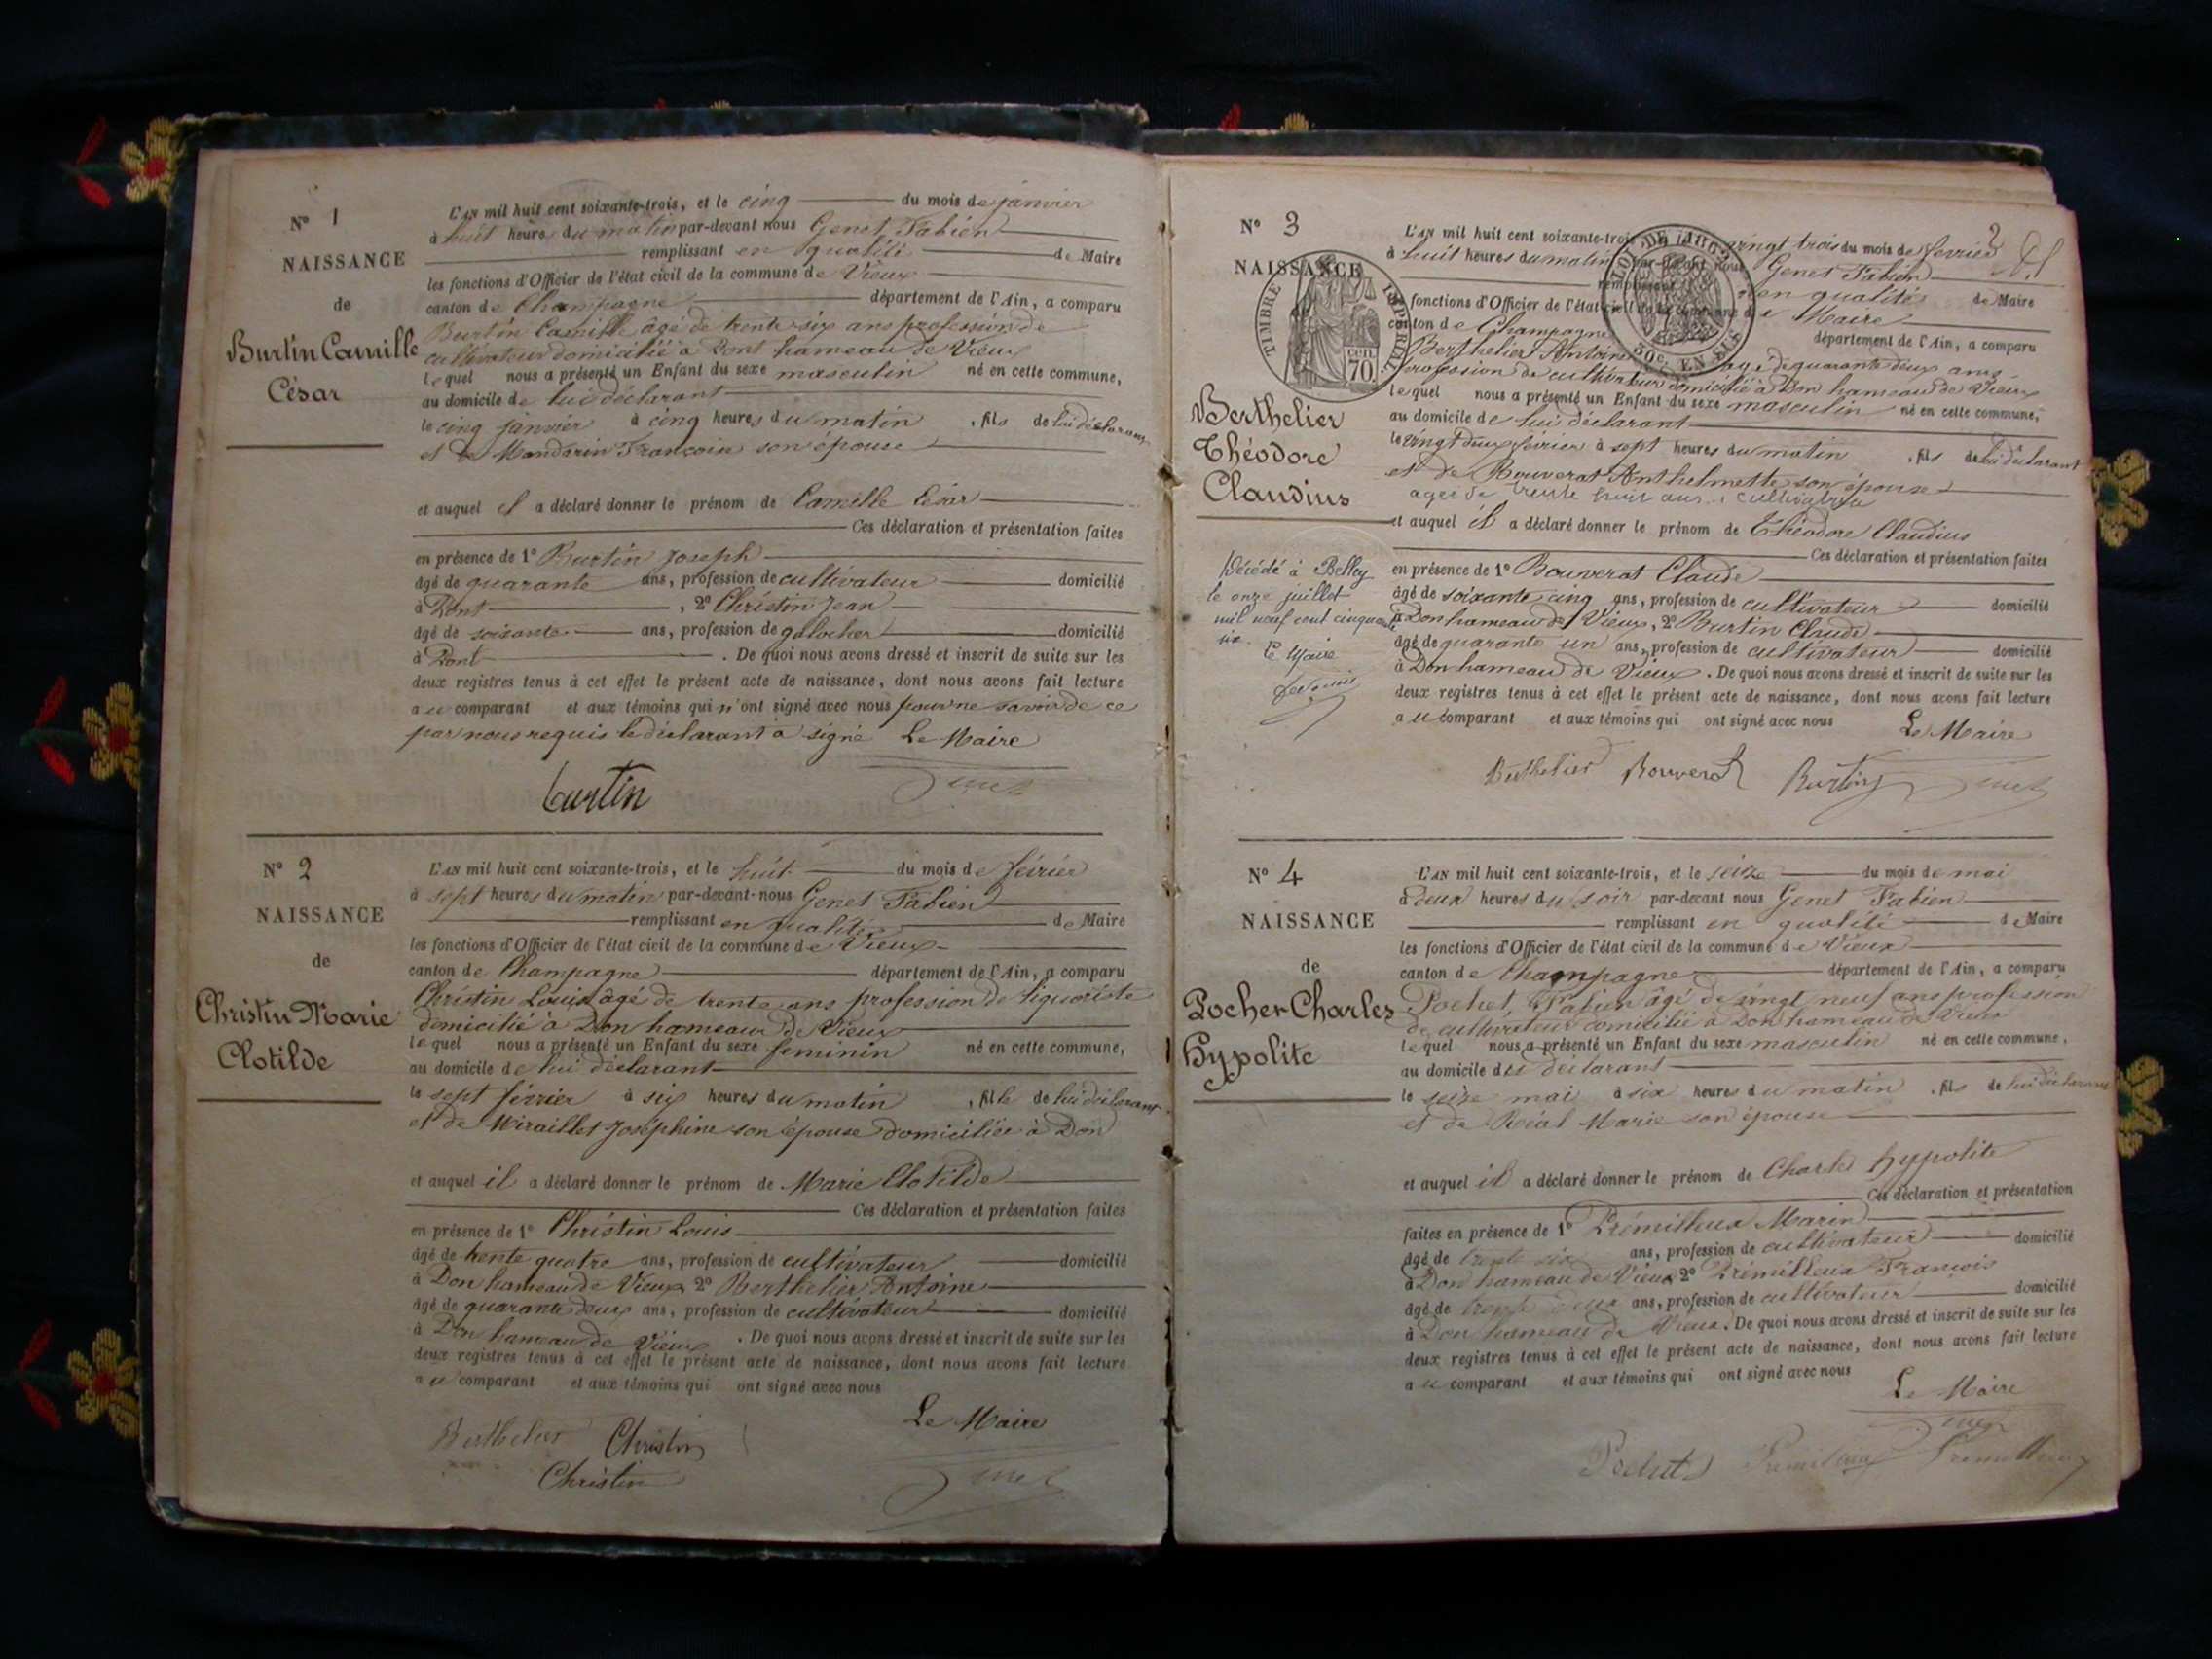 N° 1
NAISSANCE
de
Burtin Camille
César
L'AN mil huit cent soixante-trois, et le cinq du mois de janvier
à huit heures du matin par-devant nous Genet Fabien
remplissant en qualité de Maire
les fonctions d'Officier de l'état civil de la commune de Vieux
canton de Champagne département de l'Ain, a comparu
Burtin Camille âgé de trente-six ans profession de
cultivateur domicilié à Dont hameau de Vieux
lequel nous a présenté un Enfant du sexe masculin né en cette commune,
au domicile de lui déclarant
le cinq janvier à cinq heures du matin, fils de lui déclarant
et de Mandarin Françoise son épouse
et auquel il a déclaré donner le prénom de Camille César
Ces déclaration et présentation faites
en présence de 1° Burtin Joseph
âgé de quarante ans, profession de cultivateur domicilié
à Dont, 2° Christin Jean
âgé de soixante ans, profession de galocher domicilié
à Dont. De quoi nous avons dressé et inscrit de suite sur les
deux registres tenus à cet effet le présent acte de naissance, dont nous avons fait lecture
au comparant et aux témoins qui n'ont signé avec nous pour ne savoir de ce
par nous requis le déclarant a signé Le Maire
Burtin Genet
N° 2
NAISSANCE
de
Christin Marie
Clotilde
L'AN mil huit cent soixante-trois, et le huit du mois de février
à sept heures du matin par-devant-nous Genet Fabien
remplissant en qualité de Maire
les fonctions d'Officier de l'état civil de la commune de Vieux
canton de Champagne département de l'Ain, a comparu
Christin Louis âgé de trente ans profession de liquoriste
domicilié à Don hameau de Vieux
lequel nous a présenté un Enfant du sexe feminin né en cette commune,
au domicile de lui déclarant
le sept février à six heures du matin, fille de lui déclarant
et de Miraillet Joséphine son épouse domiciliée à Don
et auquel il a déclaré donner le prénom de Marie Clotilde
Ces déclaration et présentation faites
en présence de 1° Christin Louis
âgé de trente quatre ans, profession de cultivateur domicilié
à Don hameau de Vieux 2° Berthelier Antoine
âgé de quarante deux ans, profession de cultivateur domicilié
à Don hameau de Vieux. De quoi nous avons dressé et inscrit de suite sur les
deux registres tenus à cet effet le présent acte de naissance, dont nous avons fait lecture
au comparant et aux témoins qui ont signé avec nous
Le Maire
Berthelier Christin
Christin Genet
2
N° 3
NAISSANCE
TIMBRE IMPERIAL
cen. 70
50c. EN SUS
Berthelier
Théodore
Claudius
Décédé à Belley
le onze juillet
mil neuf cent cinquante
six.
Le Maire
L'AN mil huit cent soixante-trois vingt trois du mois de février
à huit heures du matin par-devant nous Genet Fabien
remplissant en qualité de Maire
fonctions d'Officier de l'état civil de la commune de Maire
canton de Champagne département de l'Ain, a comparu
Berthelier Antoine âgé de quarante deux ans
profession de cultivateur domicilié à Don hameau de Vieux
lequel nous a présenté un Enfant du sexe masculin né en cette commune,
au domicile de lui déclarant
le vingt deux février à sept heures du matin, fils de lui déclarant
et de Bouverat Anthelmette son épouse
agée de trente huit ans, cultivatrice
et auquel il a déclaré donner le prénom de Théodore Claudius
Ces déclaration et présentation faites
en présence de 1° Bouverat Claude
âgé de soixante cinq ans, profession de cultivateur domicilié
à Don hameau de Vieux, 2° Burtin Claude
âgé de quarante un ans, profession de cultivateur domicilié
à Don hameau de Vieux. De quoi nous avons dressé et inscrit de suite sur les
deux registres tenus à cet effet le présent acte de naissance, dont nous avons fait lecture
au comparant et aux témoins qui ont signé avec nous
Le Maire
Berthelier Bouverat Burtin Genet
N° 4
NAISSANCE
de
Pochet Charles
Hypolite
L'AN mil huit cent soixante-trois, et le seize du mois de mai
à deux heures du soir par-devant nous Genet Fabien
remplissant en qualité de Maire
les fonctions d'Officier de l'état civil de la commune de Vieux
canton de Champagne département de l'Ain, a comparu
Pochet Fabien âgé de vingt neuf ans profession
de cultivateur domicilié à Don hameau de Vieux
lequel nous a présenté un Enfant du sexe masculin né en cette commune,
au domicile du déclarant
le seize mai à six heures du matin, fils de lui déclarant
et de Réal Marie son épouse
et auquel il a déclaré donner le prénom de Charles hypolite
Ces déclaration et présentation
faites en présence de 1° Prémilleux Marin
âgé de trente six ans, profession de cultivateur domicilié
à Don hameau de Vieux 2° Prémilleux François
âgé de trente deux ans, profession de cultivateur domicilié
à Don hameau de Vieux. De quoi nous avons dressé et inscrit de suite sur les
deux registres tenus à cet effet le présent acte de naissance, dont nous avons fait lecture
au comparant et aux témoins qui ont signé avec nous
Le Maire
Genet
Pochet Prémilleux Prémilleux